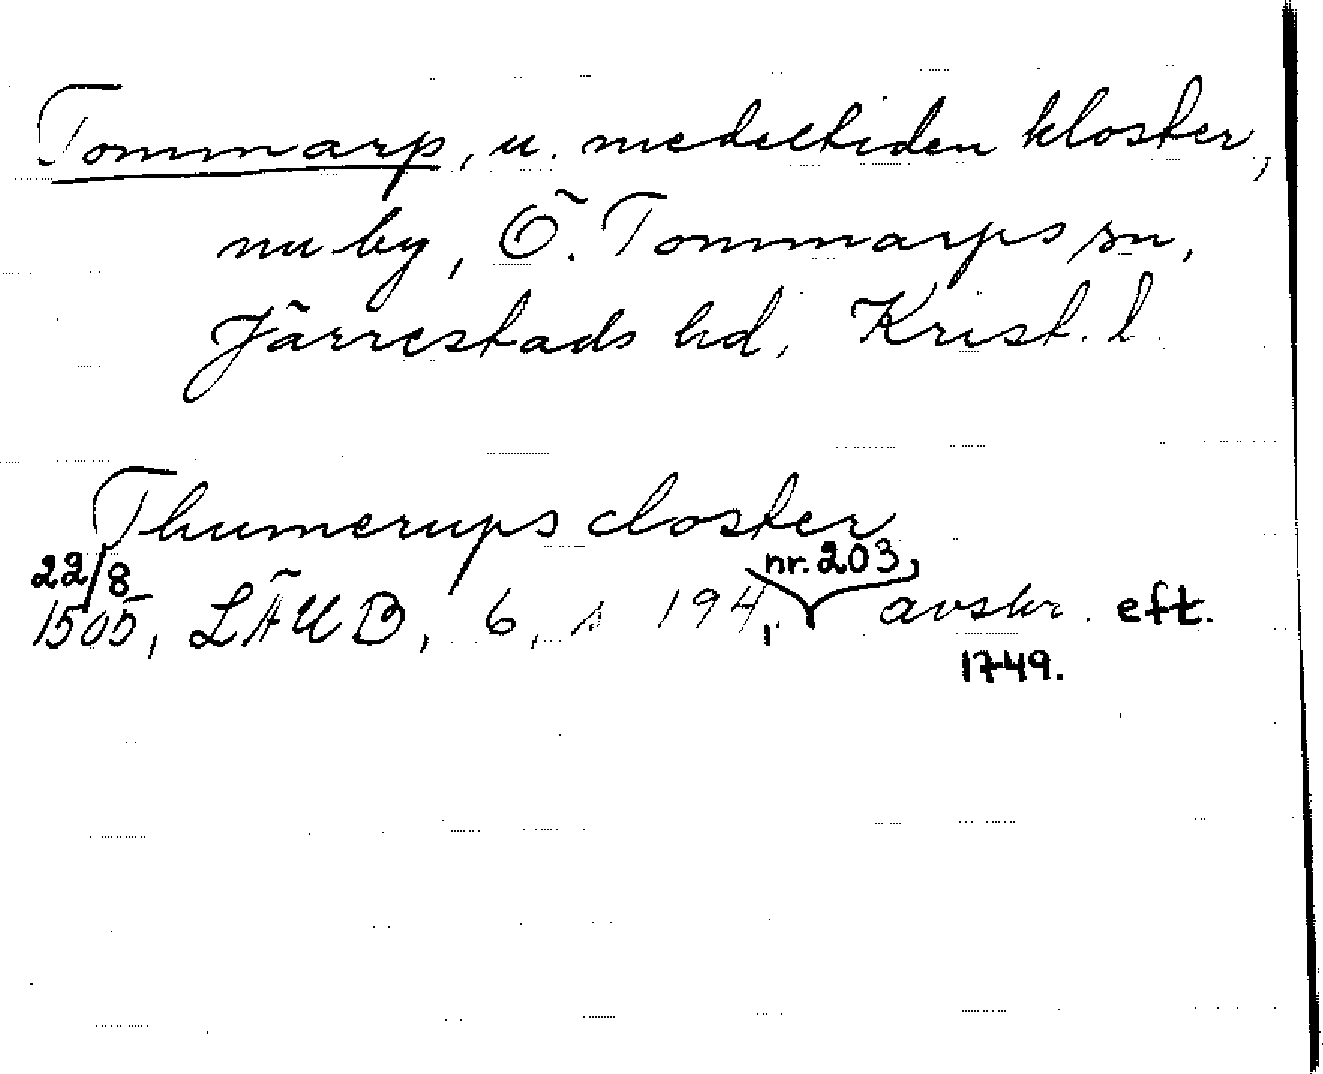 Tommarp, u. medeltiden kloster,
nu by, Ö. Tommarps sn,
Järrestads hd, Krist. l.
Thumerups closter
22/8 1505, LÄUB, 6, s 194, nr. 203, avskr. eft.
1749.